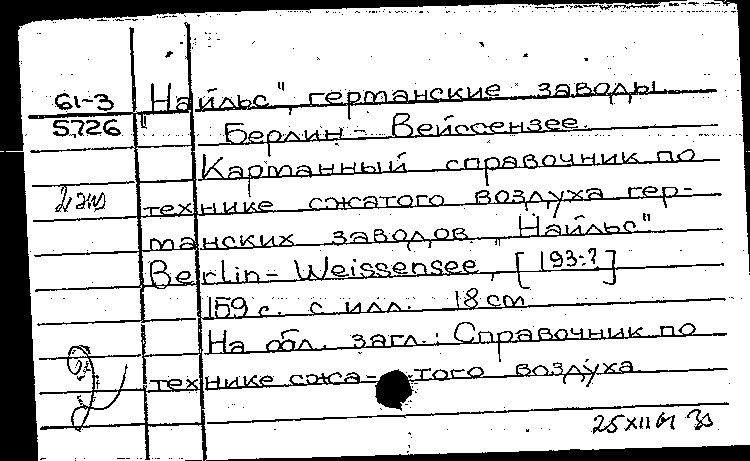 61-3 Найльс", германские заводы
5726 " Берлин - Вейссензее.
Карманный справочник по
2 экз технике сжатого воздуха гер-
манских заводов „Найльс"
Berlin - Weissensee, [193-?]
159 с. с илл. 18 cm
На обл. загл.: Справочник по
технике сжа- того воздуха
25 XII 61